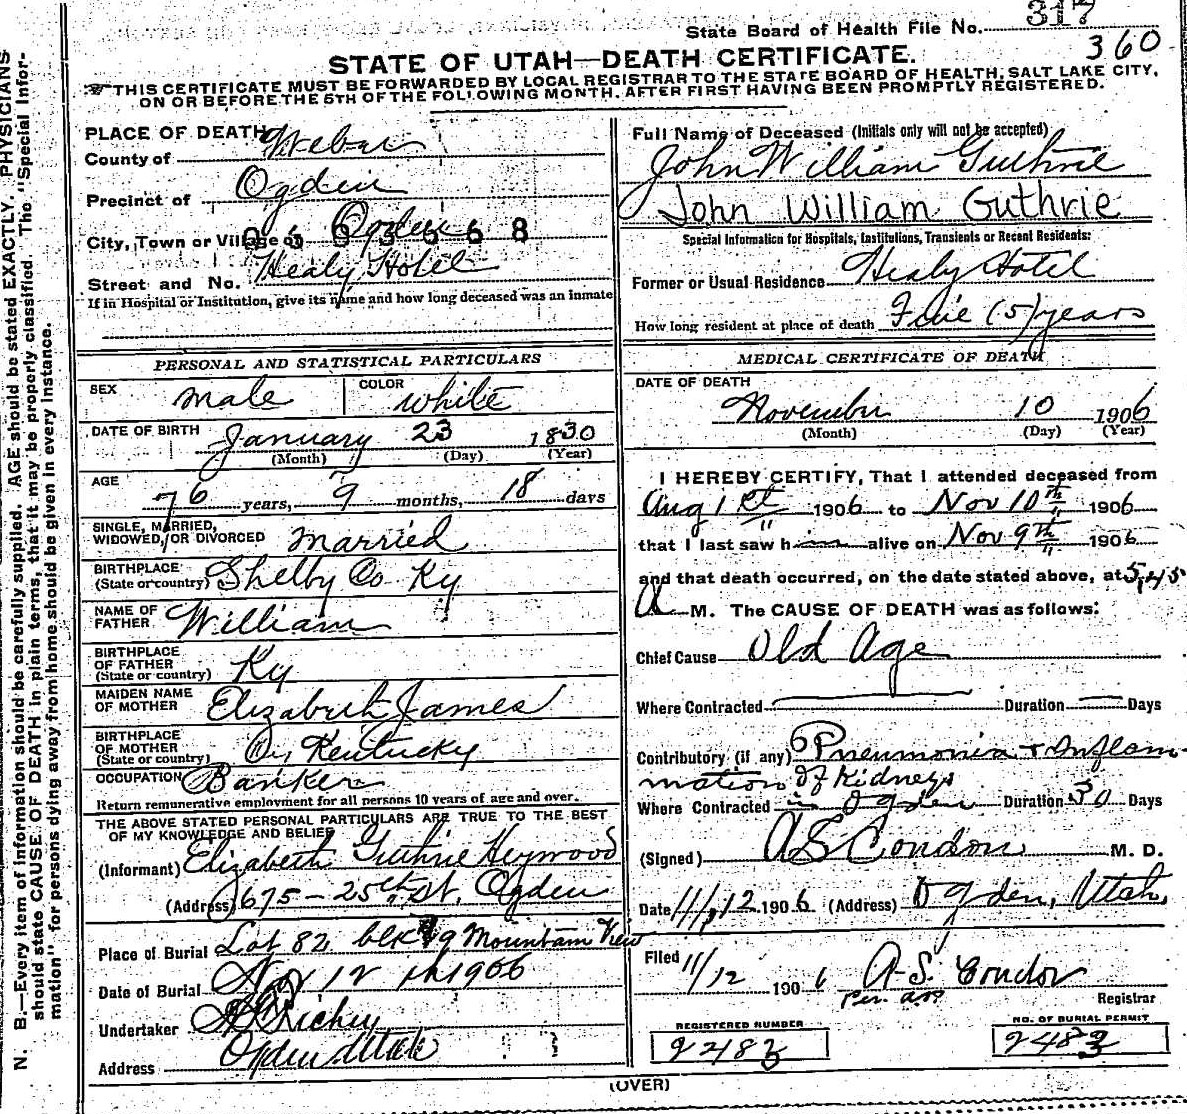 State Board of Health File No. 317
360
STATE OF UTAH—DEATH CERTIFICATE.
THIS CERTIFICATE MUST BE FORWARDED BY LOCAL REGISTRAR TO THE STATE BOARD OF HEALTH, SALT LAKE CITY,
ON OR BEFORE THE 5TH OF THE FOLLOWING MONTH, AFTER FIRST HAVING BEEN PROMPTLY REGISTERED.
N. B.—Every item of information should be carefully supplied. AGE should be stated EXACTLY. PHYSICIANS
should state CAUSE OF DEATH in plain terms, that it may be properly classified. The "Special Infor-
mation" for persons dying away from home should be given in every instance.
PLACE OF DEATH
County of Weber
Precinct of Ogden
City, Town or Village of Ogden
Street and No. Healy Hotel
If in Hospital or Institution, give its name and how long deceased was an inmate
PERSONAL AND STATISTICAL PARTICULARS
SEX male COLOR white
DATE OF BIRTH January 23 1830
(Month) (Day) (Year)
AGE 76 years, 9 months, 18 days
SINGLE, MARRIED,
WIDOWED, OR DIVORCED married
BIRTHPLACE
(State or country) Shelby Co Ky
NAME OF
FATHER William
BIRTHPLACE
OF FATHER
(State or country) Ky
MAIDEN NAME
OF MOTHER Elizabeth James
BIRTHPLACE
OF MOTHER
(State or country) Kentucky
OCCUPATION Banker
Return remunerative employment for all persons 10 years of age and over.
THE ABOVE STATED PERSONAL PARTICULARS ARE TRUE TO THE BEST
OF MY KNOWLEDGE AND BELIEF
(Informant) Elizabeth Guthrie Heywood
(Address) 675 - 25th St. Ogden
Place of Burial Lot 82 blk 9 Mountain View
Date of Burial Nov 12th 1906
Undertaker Richey
Address Ogden Utah
Full Name of Deceased (Initials only will not be accepted)
John William Guthrie
John William Guthrie
Special Information for Hospitals, Institutions, Transients or Recent Residents:
Former or Usual Residence Healy Hotel
How long resident at place of death Five (5) years
MEDICAL CERTIFICATE OF DEATH
DATE OF DEATH
November 10 1906
(Month) (Day) (Year)
I HEREBY CERTIFY, That I attended deceased from
Aug 1st 1906 to Nov 10th 1906
that I last saw him alive on Nov 9th 1906
and that death occurred, on the date stated above, at 5,45
A M. The CAUSE OF DEATH was as follows:
Chief Cause Old Age
Where Contracted Duration Days
Contributory (if any) Pneumonia + Inflam-
mation of Kidneys
Where Contracted in Ogden Duration 30 Days
(Signed) A S Condon M. D.
Date 11/12 1906 (Address) Ogden, Utah,
Filed 11/12 1906 A. S. Condon
Registrar
REGISTERED NUMBER
2483
NO. OF BURIAL PERMIT
2483
(OVER)